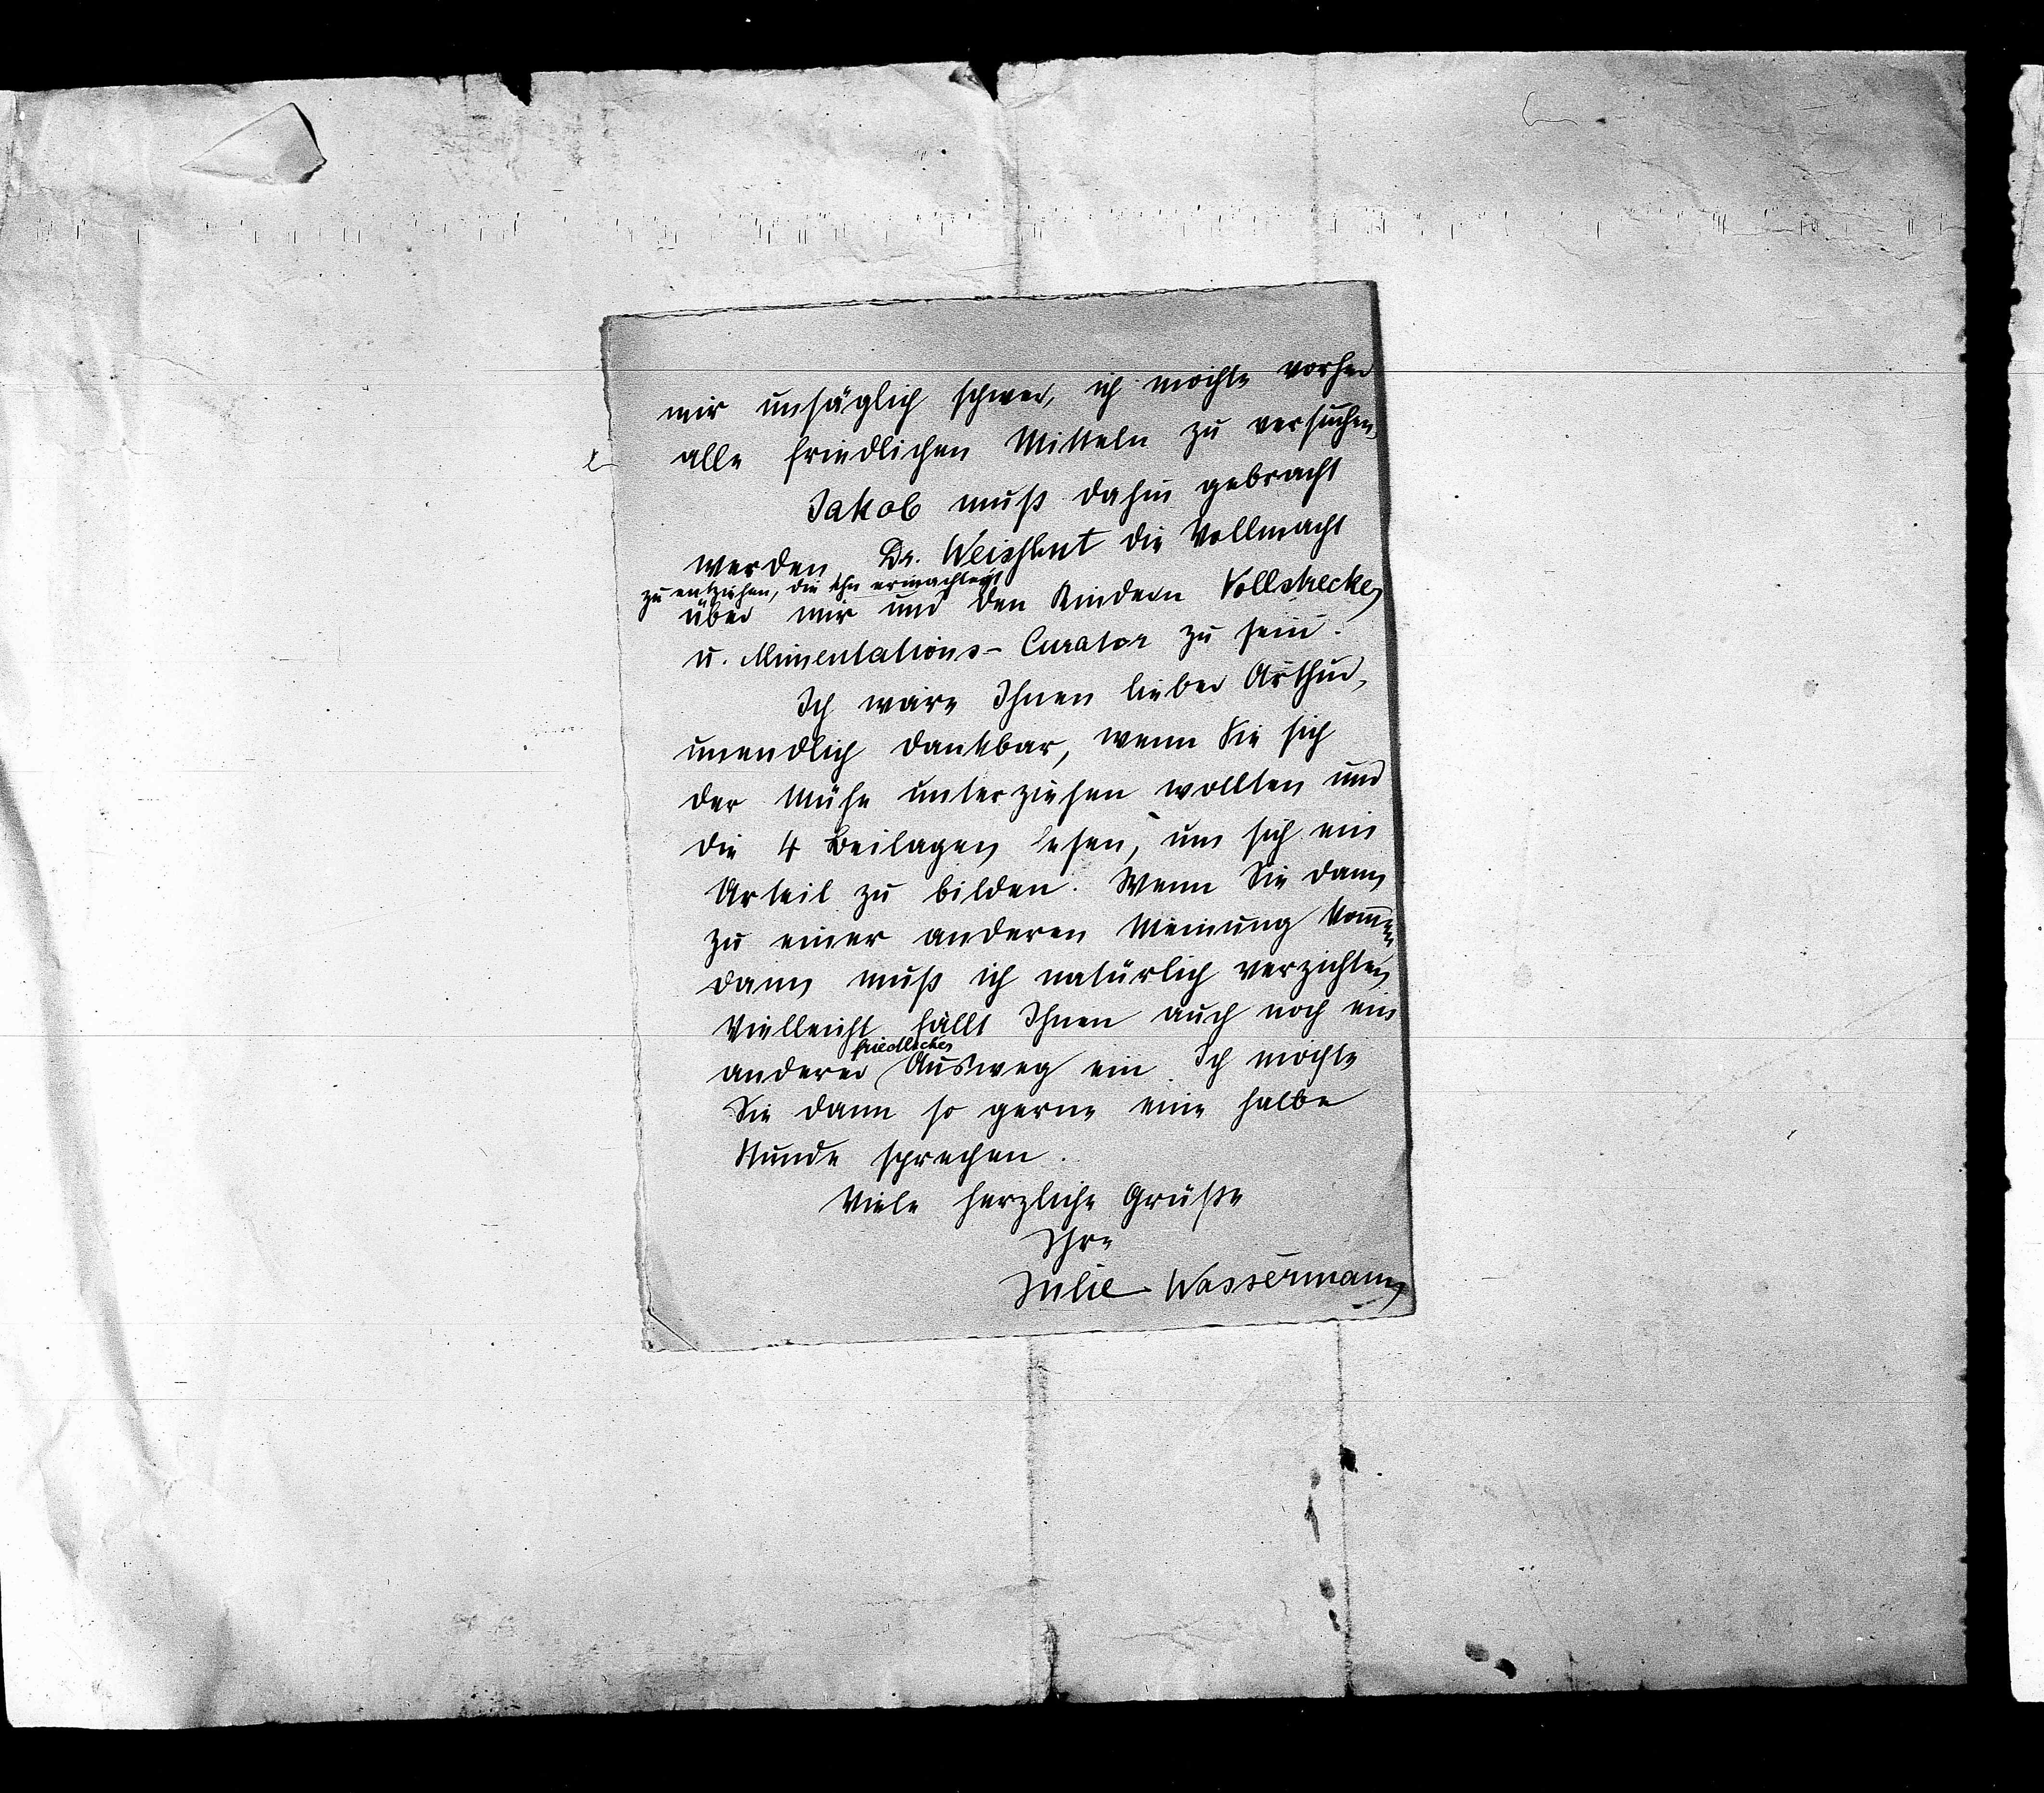 mir unsäglich schwer, ich möchte vorher
alle friedlichen Mitteln zu versuchen.
Jakob muß dahin gebracht
werden, Dr. Weishut die Vollmacht
zu entziehen, die ihn ermächtigt
über mir und den Kindern Vollstrecker
u. Alimentations-Curator zu sein.
Ich wäre Ihnen lieber Arthur,
unendlich dankbar, wenn Sie sich
der Mühe unterziehen wollten und
die 4 Beilagen lesen, um sich ein
Urteil zu bilden. Wenn Sie dann
zu einer anderen Meinung kommen
dann muß ich natürlich verzichten,
Vielleicht fällt Ihnen auch noch ein
friedlicher
anderer Ausweg ein. Ich möchte
Sie dann so gerne eine halbe
Stunde sprechen.
Viele herzliche Grüße
Ihre
Julie Wassermann